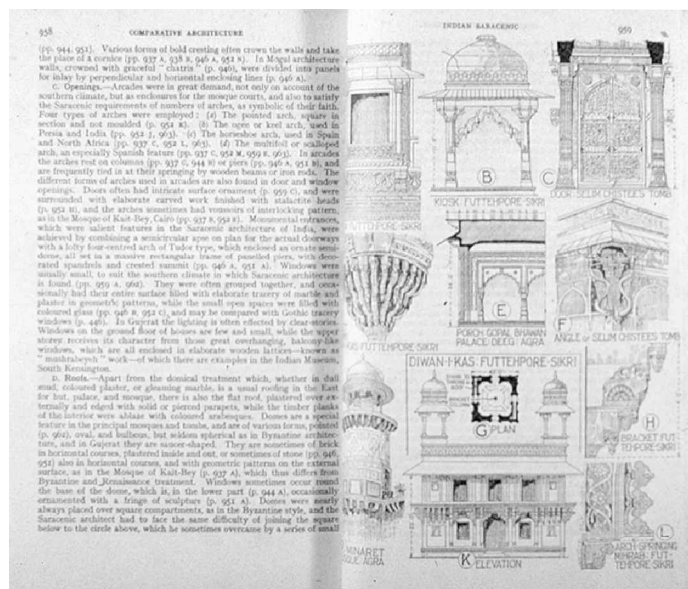 958 COMPARATIVE ARCHITECTURE
(pp. 944, 951). Various forms of bold cresting often crown the walls and take
the place of a cornice (pp. 937 A, 938 B, 946 A, 952 N). In Mogul architecture
walls, crowned with graceful "chatris" (p. 946), were divided into panels
for inlay by perpendicular and horizontal enclosing lines (p. 946 A).
C. Openings.—Arcades were in great demand, not only on account of the
southern climate, but as enclosures for the mosque courts, and also to satisfy
the Saracenic requirements of numbers of arches, as symbolic of their faith.
Four types of arches were employed: (a) The pointed arch, square in
section and not moulded (p. 951 B). (b) The ogee or keel arch, used in
Persia and India (pp. 952 J, 963). (c) The horseshoe arch, used in Spain
and North Africa (pp. 937 C, 952 L, 963). (d) The multifoil or scalloped
arch, an especially Spanish feature (pp. 937 C, 952 M, 959 E, 963). In arcades
the arches rest on columns (pp. 937 C, 944 B) or piers (pp. 946 A, 951 B), and
are frequently tied in at their springing by wooden beams or iron rods. The
different forms of arches used in arcades are also found in door and window
openings. Doors often had intricate surface ornament (p. 959 C), and were
surrounded with elaborate carved work finished with stalactite heads
(p. 952 B), and the arches sometimes had voussoirs of interlocking pattern,
as in the Mosque of Kait-Bey, Cairo (pp. 937 B, 952 E). Monumental entrances,
which were salient features in the Saracenic architecture of India, were
achieved by combining a semicircular apse on plan for the actual doorways
with a lofty four-centred arch of Tudor type, which enclosed an ornate semi-
dome, all set in a massive rectangular frame of panelled piers, with deco-
rated spandrels and crested summit (pp. 946 A, 951 A). Windows were
usually small, to suit the southern climate in which Saracenic architecture
is found (pp. 959 A, 962). They were often grouped together, and occa-
sionally had their entire surface filled with elaborate tracery of marble and
plaster in geometric patterns, while the small open spaces were filled with
coloured glass (pp. 946 B, 952 C), and may be compared with Gothic tracery
windows (p. 446). In Gujerat the lighting is often effected by clear-stories.
Windows on the ground floor of houses are few and small, while the upper
storey receives its character from those great overhanging, balcony-like
windows, which are all enclosed in elaborate wooden lattices—known as
"mushrabeyeh" work—of which there are examples in the Indian Museum,
South Kensington.
D. Roofs.—Apart from the domical treatment which, whether in dull
mud, coloured plaster, or gleaming marble, is a usual roofing in the East
for hut, palace, and mosque, there is also the flat roof, plastered over ex-
ternally and edged with solid or pierced parapets, while the timber planks
of the interior were ablaze with coloured arabesques. Domes are a special
feature in the principal mosques and tombs, and are of various forms, pointed
(p. 962), oval, and bulbous, but seldom spherical as in Byzantine architec-
ture, and in Gujerat they are saucer-shaped. They are sometimes of brick
in horizontal courses, plastered inside and out, or sometimes of stone (pp. 946,
951) also in horizontal courses, and with geometric patterns on the external
surface, as in the Mosque of Kait-Bey (p. 937 A), which thus differs from
Byzantine and Renaissance treatment. Windows sometimes occur round
the base of the dome, which is, in the lower part (p. 944 A), occasionally
ornamented with a fringe of sculpture (p. 951 A). Domes were nearly
always placed over square compartments, as in the Byzantine style, and the
Saracenic architect had to face the same difficulty of joining the square
below to the circle above, which he sometimes overcame by a series of small
INDIAN SARACENIC 959
B
C
KIOSK: FUTTEHPORE-SIKRI
DOOR: SELIM CHISTEES TOMB
FUTTEHPORE-SIKRI
E
F
PORCH: GOPAL BHAWAN
PALACE: DEEG: AGRA
ANGLE OF SELIM CHISTEES TOMB
FUTTEHPORE-SIKRI
DIWAN-I-KAS: FUTTEHPORE-SIKRI
G PLAN
H
BRACKET: FUT-
TEHPORE-SIKRI
MINARET
AGRA
K ELEVATION
L
ARCH-SPRINGING
MIHRAB: FUT-
TEHPORE SIKRI